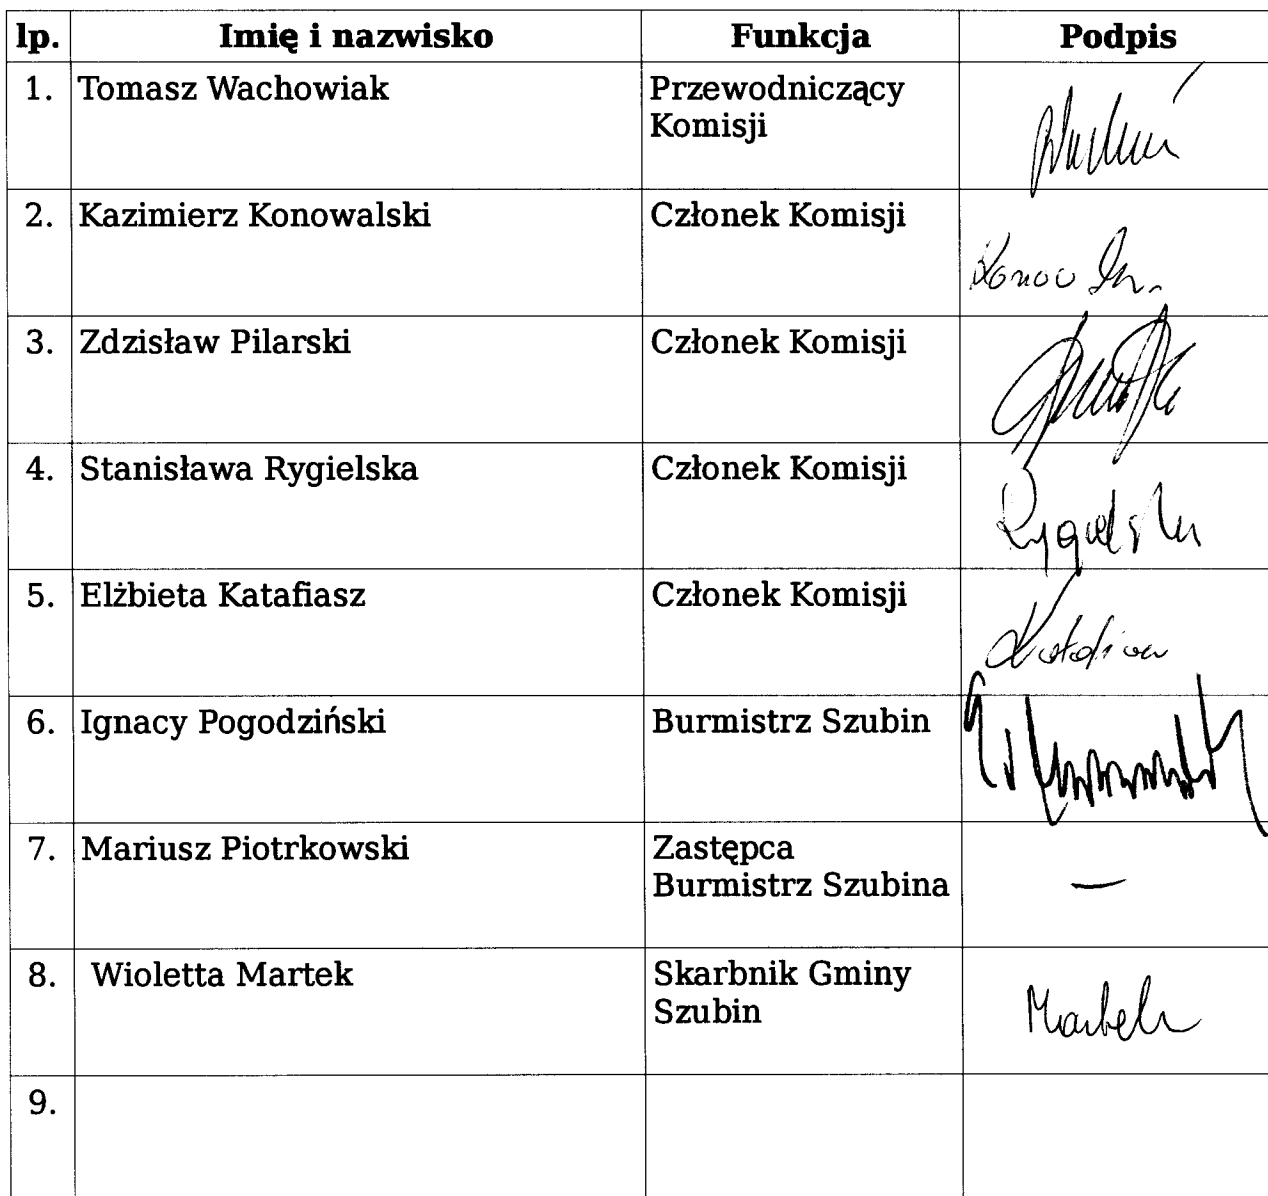 lp. Imię i nazwisko Funkcja Podpis
1. Tomasz Wachowiak Przewodniczący
Komisji
2. Kazimierz Konowalski Członek Komisji
3. Zdzisław Pilarski Członek Komisji
4. Stanisława Rygielska Członek Komisji
5. Elżbieta Katafiasz Członek Komisji
6. Ignacy Pogodziński Burmistrz Szubin
7. Mariusz Piotrkowski Zastępca
Burmistrz Szubina
—
8. Wioletta Martek Skarbnik Gminy
Szubin
9.